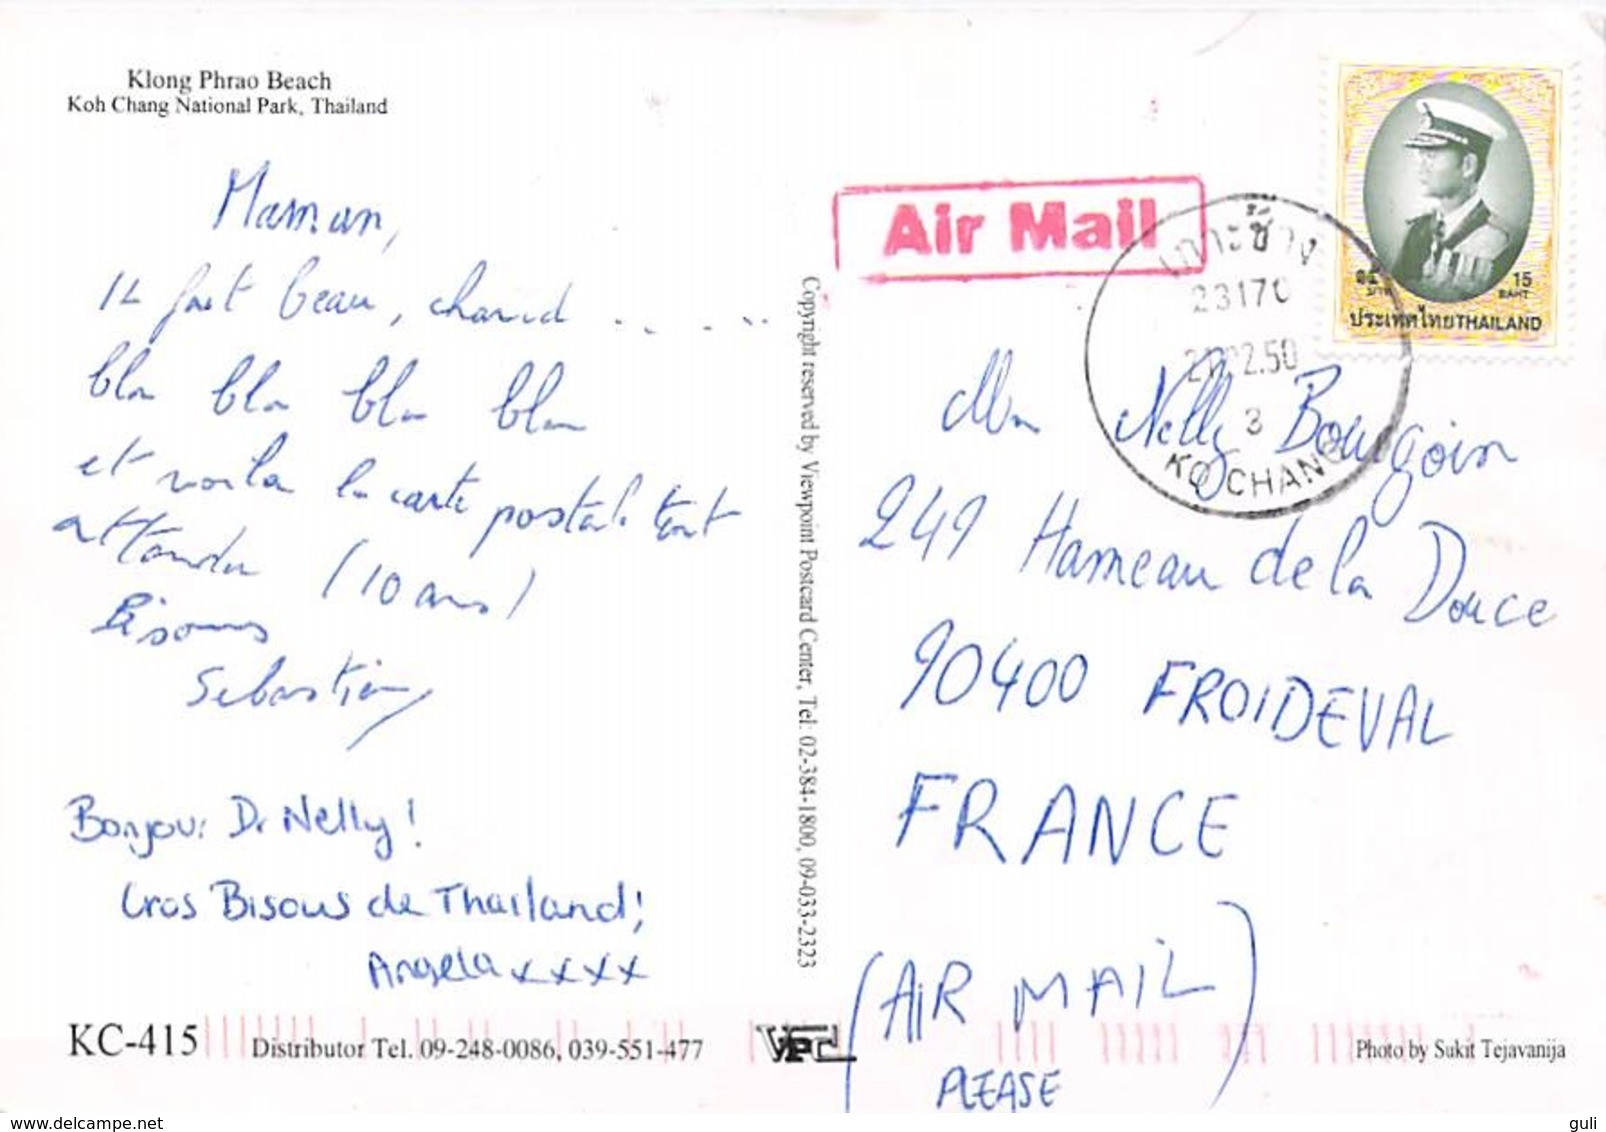 Klong Phrao Beach
Koh Chang National Park, Thailand
Maman,
Il fait beau, chaud .. . ...
bla bla bla bla
et voila la carte postale tant
attendu (10 ans)
Bisous
Sebastien
Bonjour Dr Nelly!
Gros Bisous de Thailand!
Angela xxxx
KC-415
Distributor Tel. 09-248-0086, 039-551-477
VPC
Copyright reserved by Viewpoint Postcard Center, Tel. 02-384-1800, 09-033-2323
Air Mail
เกาะช้าง
23170
02.50
3
KO CHANG
๑๕ 15
บาท BAHT
ประเทศไทย THAILAND
Nelly Bourgoin
249 Hameau de la Douce
90400 FROIDEVAL
FRANCE
(AIR MAIL)
PLEASE
Photo by Sukit Tejavanija
guli